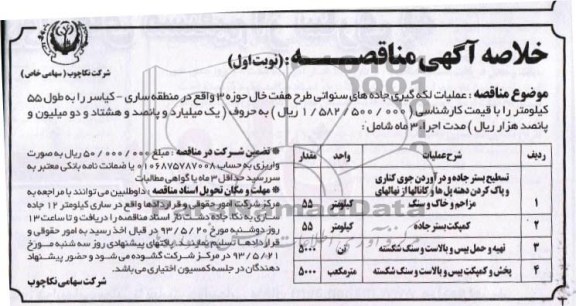 خلاصه آگهی مناقصه : (نوبت اول)
شرکت نکاچوب (سهامی خاص)
موضوع مناقصه : عملیات لکه گیری جاده های سنواتی طرح هفت خال حوزه ۳ واقع در منطقه ساری - کیاسر را به طول ۵۵
کیلومتر را با قیمت کارشناسی ( ۱/۵۸۲/۵۰۰/۰۰۰ ریال ) به حروف ( یک میلیارد و پانصد و هشتاد و دو میلیون و
پانصد هزار ریال ) مدت اجراء ۳ ماه شامل :
ردیف شرح عملیات واحد مقدار
۱ تسطیح بستر جاده و درآوردن جوی کناری و پاک کردن دهنه پل ها و کانالها از نهالهای مزاحم و خاک و سنگ کیلومتر ۵۵
۲ کمپکت بستر جاده کیلومتر ۵۵
۳ تهیه و حمل بیس و بالاست و سنگ شکسته تن ۵۰۰۰
۴ پخش و کمپکت بیس و بالاست و سنگ شکسته مترمکعب ۵۰۰۰
* تضمین شرکت در مناقصه : مبلغ ۵۰/۰۰۰/۰۰۰ ریال به صورت
واریزی به حساب ۰۱۰۶۸۷۵۷۸۷۰۰۸ یا ضمانت نامه بانکی معتبر به
سررسید حداقل ۳ ماه یا گواهی مطالبات
* مهلت و مکان تحویل اسناد مناقصه : داوطلبین می توانند با مراجعه به
مرکز شرکت امور حقوقی و قراردادها واقع در ساری کیلومتر ۱۲ جاده
ساری به نکا، جاده دشت ناز اسناد مناقصه را دریافت و تا ساعت ۱۳
روز دوشنبه مورخ ۹۳/۵/۲۰ در قبال اخذ رسید به امور حقوقی و
قراردادها تسلیم نمایند. پاکتهای پیشنهادی روز سه شنبه مورخ
۹۳/۵/۲۱ در مرکز شرکت گشوده می شود و حضور پیشنهاد
دهندگان در جلسه کمسیون اختیاری می باشد.
شرکت سهامی نکاچوب